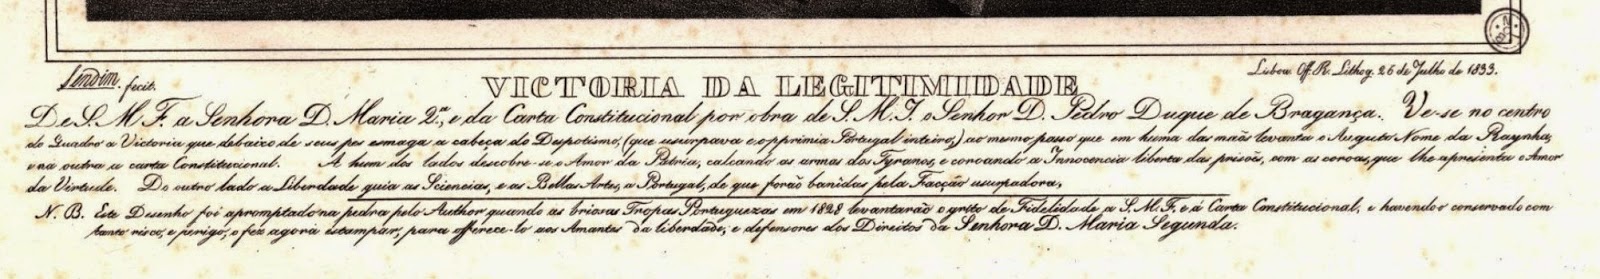 Sendim. fecit.
Lisboa Off. R. Lithog. 25 de Julho de 1833.
VICTORIA DA LEGITIMIDADE
De S. M. F. a Senhora D. Maria 2.ª, e da Carta Constitucional por obra de S. M. I. o Senhor D. Pedro Duque de Bragança. Ve-se no centro
do Quadro a Victoria que debaixo de seus pes esmaga a cabeça do Despotismo, (que usurpava e opprimia Portugal inteiro,) ao memo passo que em huma das mãos levanta o Augusto Nome da Raynha,
e na outra a carta Constitucional. A hum dos lados descobre-se o Amor da Patria, calcando as armas dos Tyranos, e coroando a Innocencia liberta das prisões, com as coroas, que lhe apresenta o Amor
da Virtude. Do outro lado a Liberdade guia as Sciencias, e as Bellas Artes, a Portugal, de que forão banidas pela Facção usurpadora,
N. B. Este Desenho foi apromptado na pedra pelo Author quando as briosas Tropas Portuguezas em 1828 levantarão o grito de Fidelidade a S. M. F. e á Carta Constitucional, e havendo o conservado com
tanto risco, e perigo, o fez agora estampar, para offerece-lo aos Amantes da liberdade, e defensores dos Direitos da Senhora D. Maria Segunda.